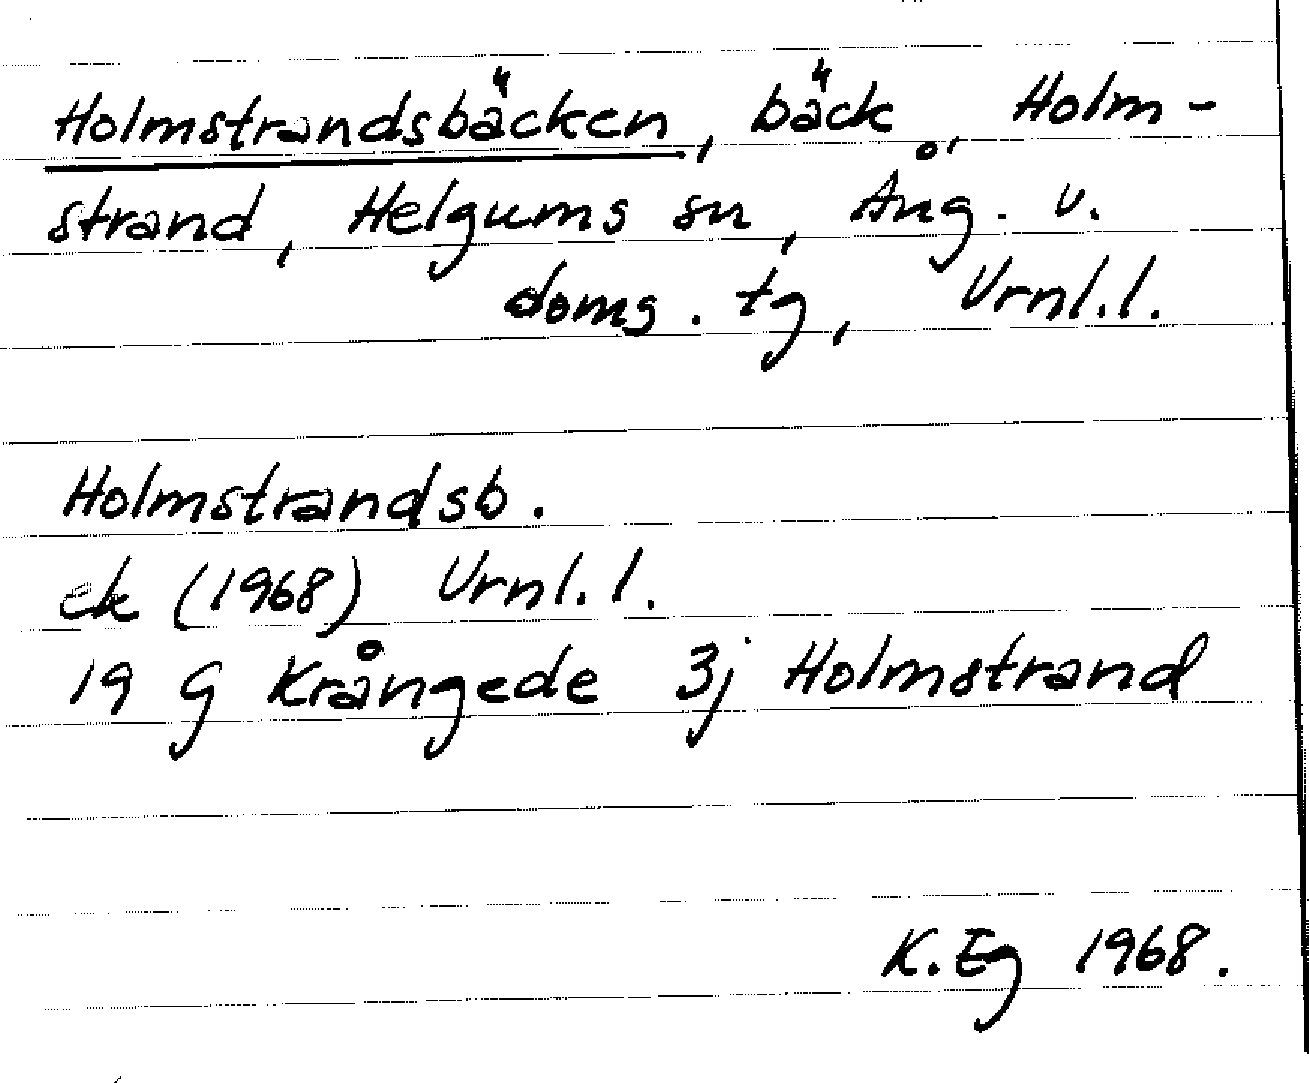 Holmstrandsbäcken, bäck, Holm-
strand, Helgums sn, Ång. v.
doms. tg, Vrnl.l.
Holmstrandsb.
ek (1968) Vrnl.l.
19 G Krångede 3j Holmstrand
K. Eg 1968.